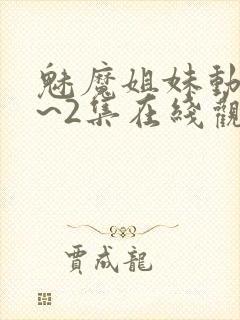 魅魔姐妹動
~2集在綫觀
賈成龍